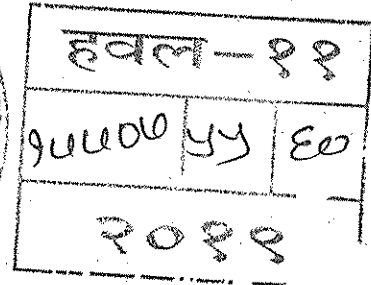 हवल-११
१५५०७ ५५ ६७
२०११